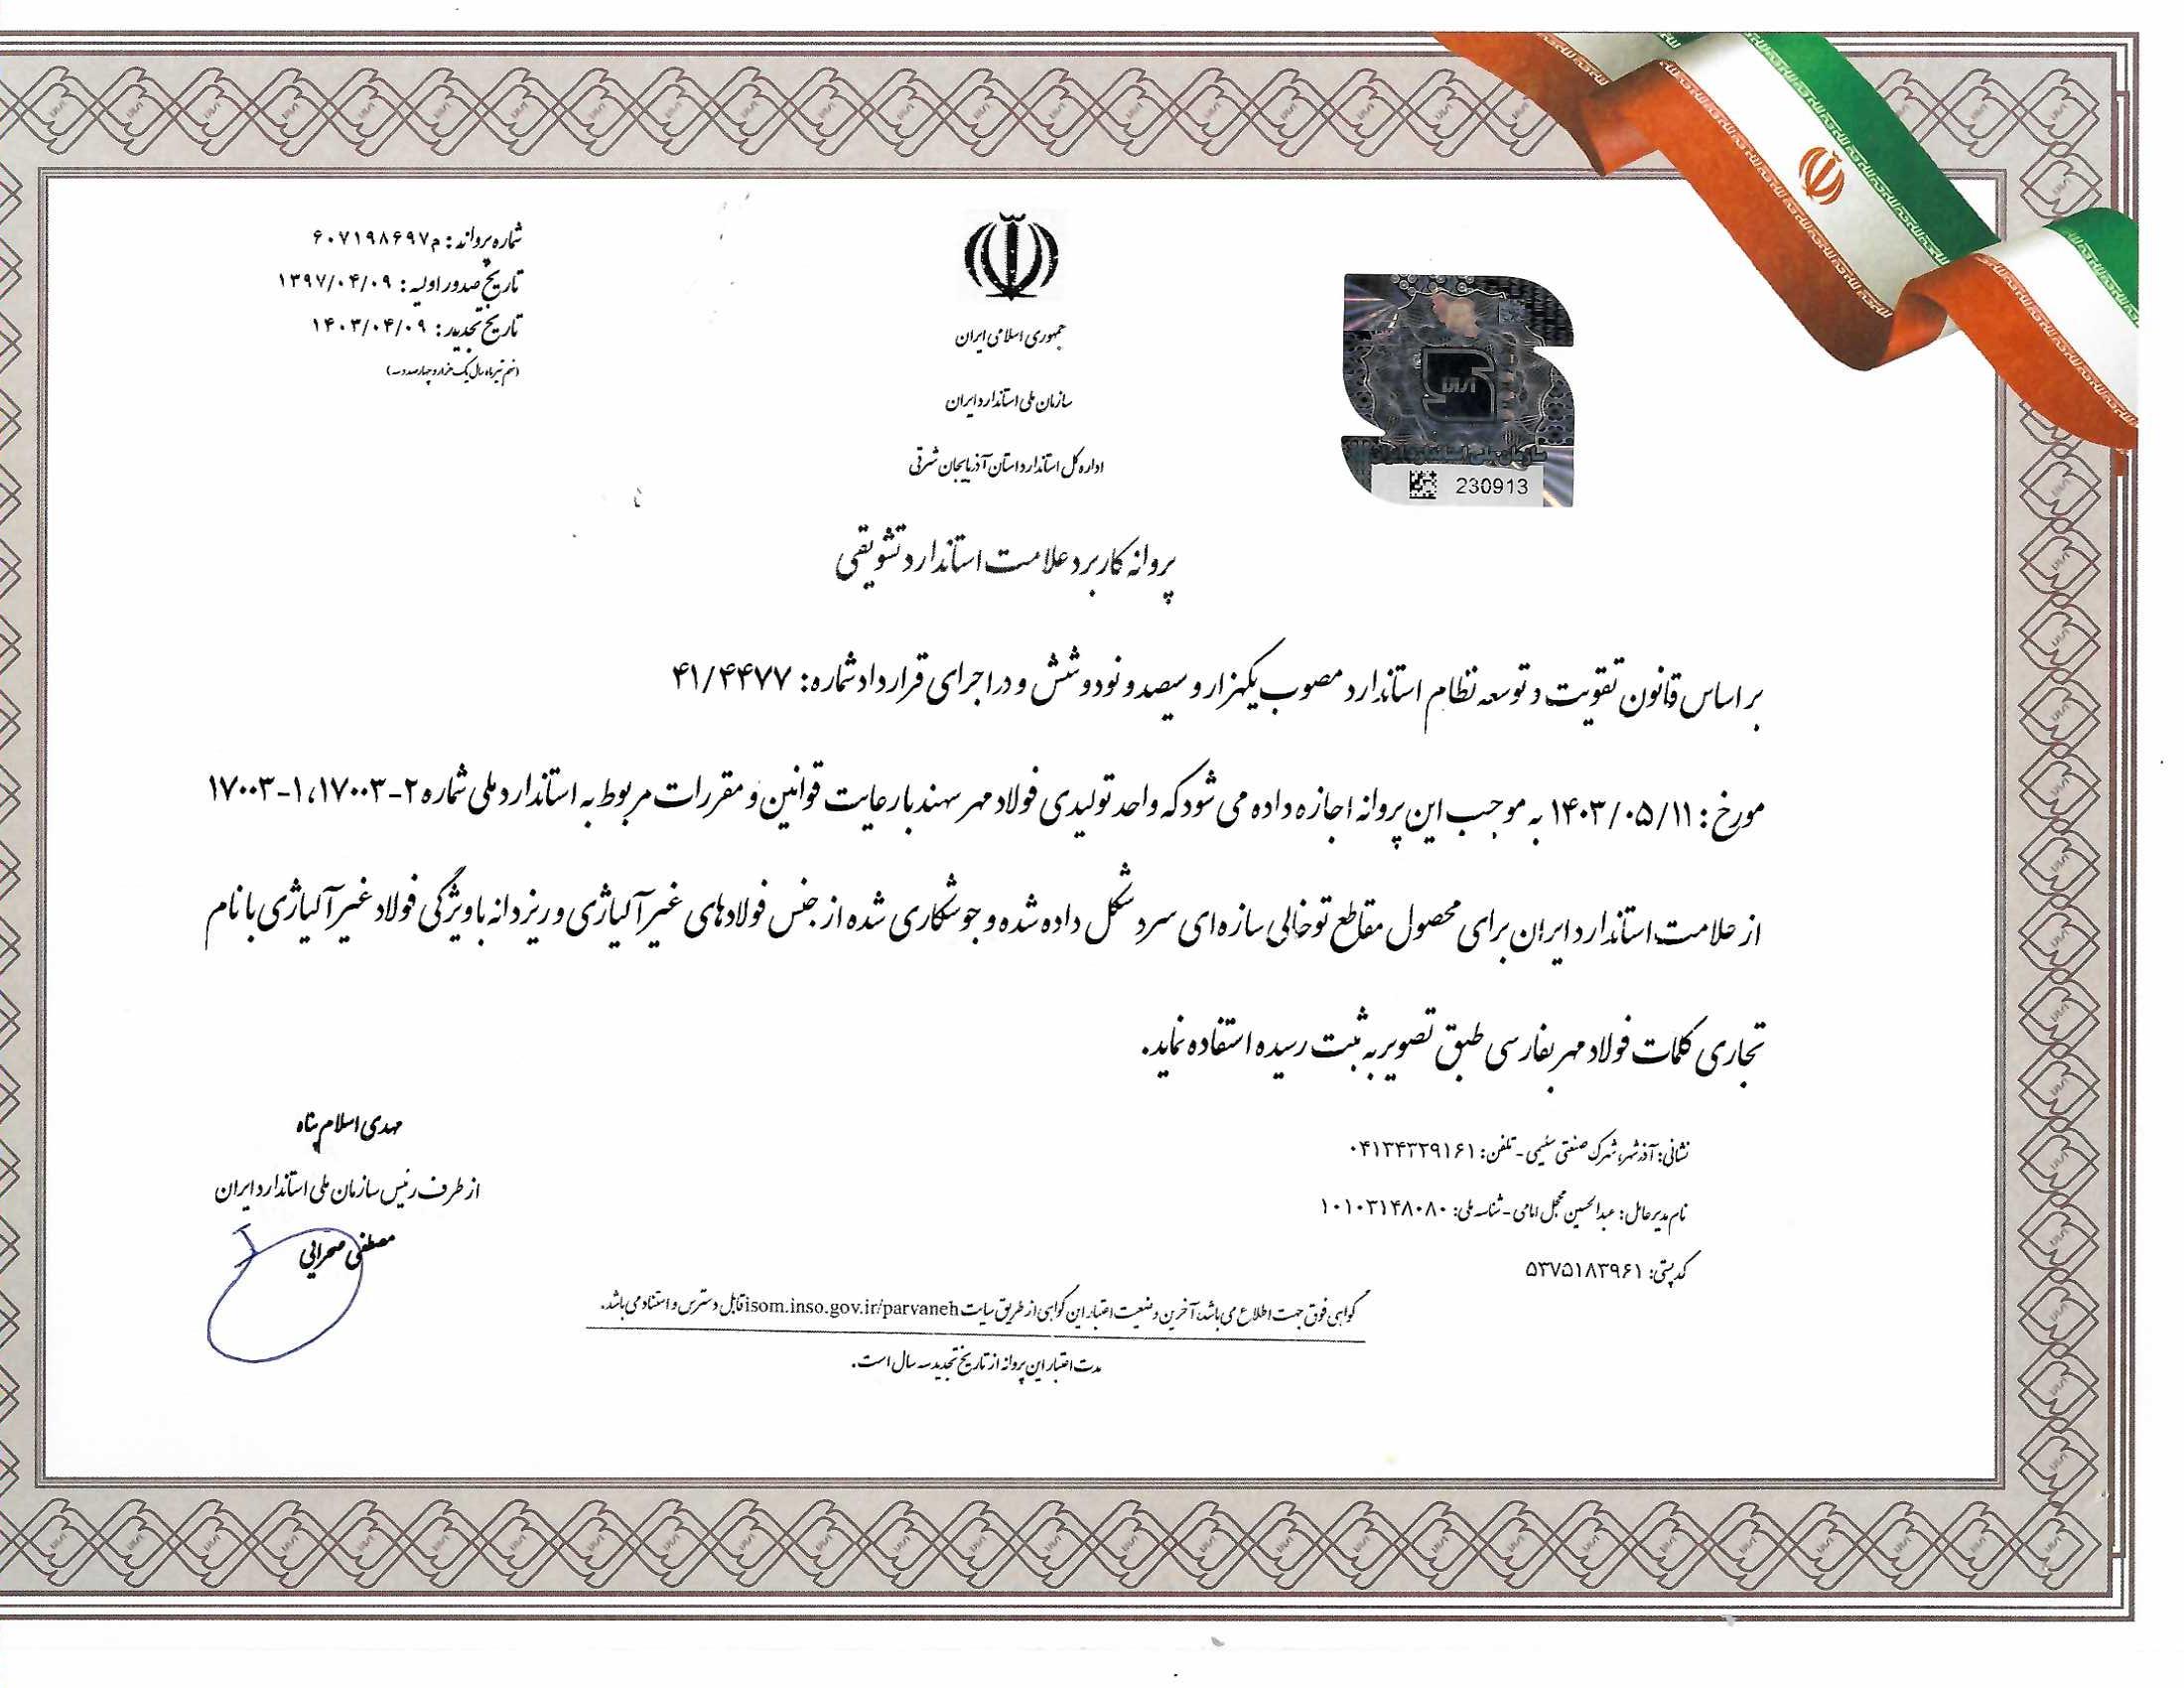 شماره پروانه: م۶۰۷۱۹۸۶۹۷
تاریخ صدور اولیه: ۱۳۹۷/۰۴/۰۹
تاریخ تجدید: ۱۴۰۳/۰۴/۰۹
(نهم تیر ماه سال یک هزار و چهارصد و سه)
جمهوری اسلامی ایران
سازمان ملی استاندارد ایران
اداره کل استاندارد استان آذربایجان شرقی
سازمان ملی استاندارد ایران
230913
پروانه کاربرد علامت استاندارد تشویقی
بر اساس قانون تقویت و توسعه نظام استاندارد مصوب یکهزار و سیصد و نود و شش و در اجرای قرارداد شماره: ۴۱/۴۴۷۷
مورخ: ۱۴۰۳/۰۵/۱۱ به موجب این پروانه اجازه داده می شود که واحد تولیدی فولاد مهر سهند با رعایت قوانین و مقررات مربوط به استاندارد ملی شماره ۲-۱۷۰۰۳، ۱-۱۷۰۰۳
از علامت استاندارد ایران برای محصول مقاطع توخالی سازه ای سرد شکل داده شده و جوشکاری شده از جنس فولادهای غیر آلیاژی و ریزدانه با ویژگی فولاد غیر آلیاژی با نام
تجاری کلمات فولاد مهر بفارسی طبق تصویر به ثبت رسیده استفاده نماید.
نشانی: آذرشهر، شهرک صنعتی سلیمی - تلفن: ۰۴۱۳۴۳۲۹۱۶۱
نام مدیرعامل: عبدالحسین محجل امامی - شناسه ملی: ۱۰۱۰۳۱۴۸۰۸۰
کد پستی: ۵۳۷۵۱۸۳۹۶۱
مهدی اسلام پناه
از طرف رئیس سازمان ملی استاندارد ایران
مصطفی صحرایی
گواهی فوق جهت اطلاع می باشد، آخرین وضعیت اعتبار این گواهی از طریق سایت isom.inso.gov.ir/parvaneh قابل دسترس و استناد می باشد.
مدت اعتبار این پروانه از تاریخ تجدید سه سال است.